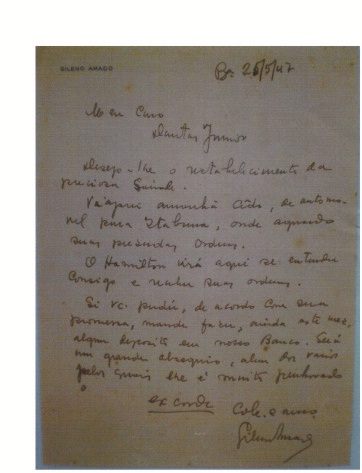 GILENO AMADO
Ba. 26/5/47
Meu Caro
Dantas Junior
Desejo-lhe o restabelecimento da
preciosa saúde.
Viajarei amanhã cêdo, de automo-
vel para Itabuna, onde aguardo
suas prezadas ordens.
O Hamilton irá aqui se entender
Consigo e receber suas ordens.
Si Vc. puder, de acordo com sua
promessa, mande fazer, ainda este mez,
algum deposito em nosso Banco. Será
um grande obsequio, além dos varios
pelos quaes lhe é muito penhorado
o
ex corde Cole. e amo.
Gileno Amado